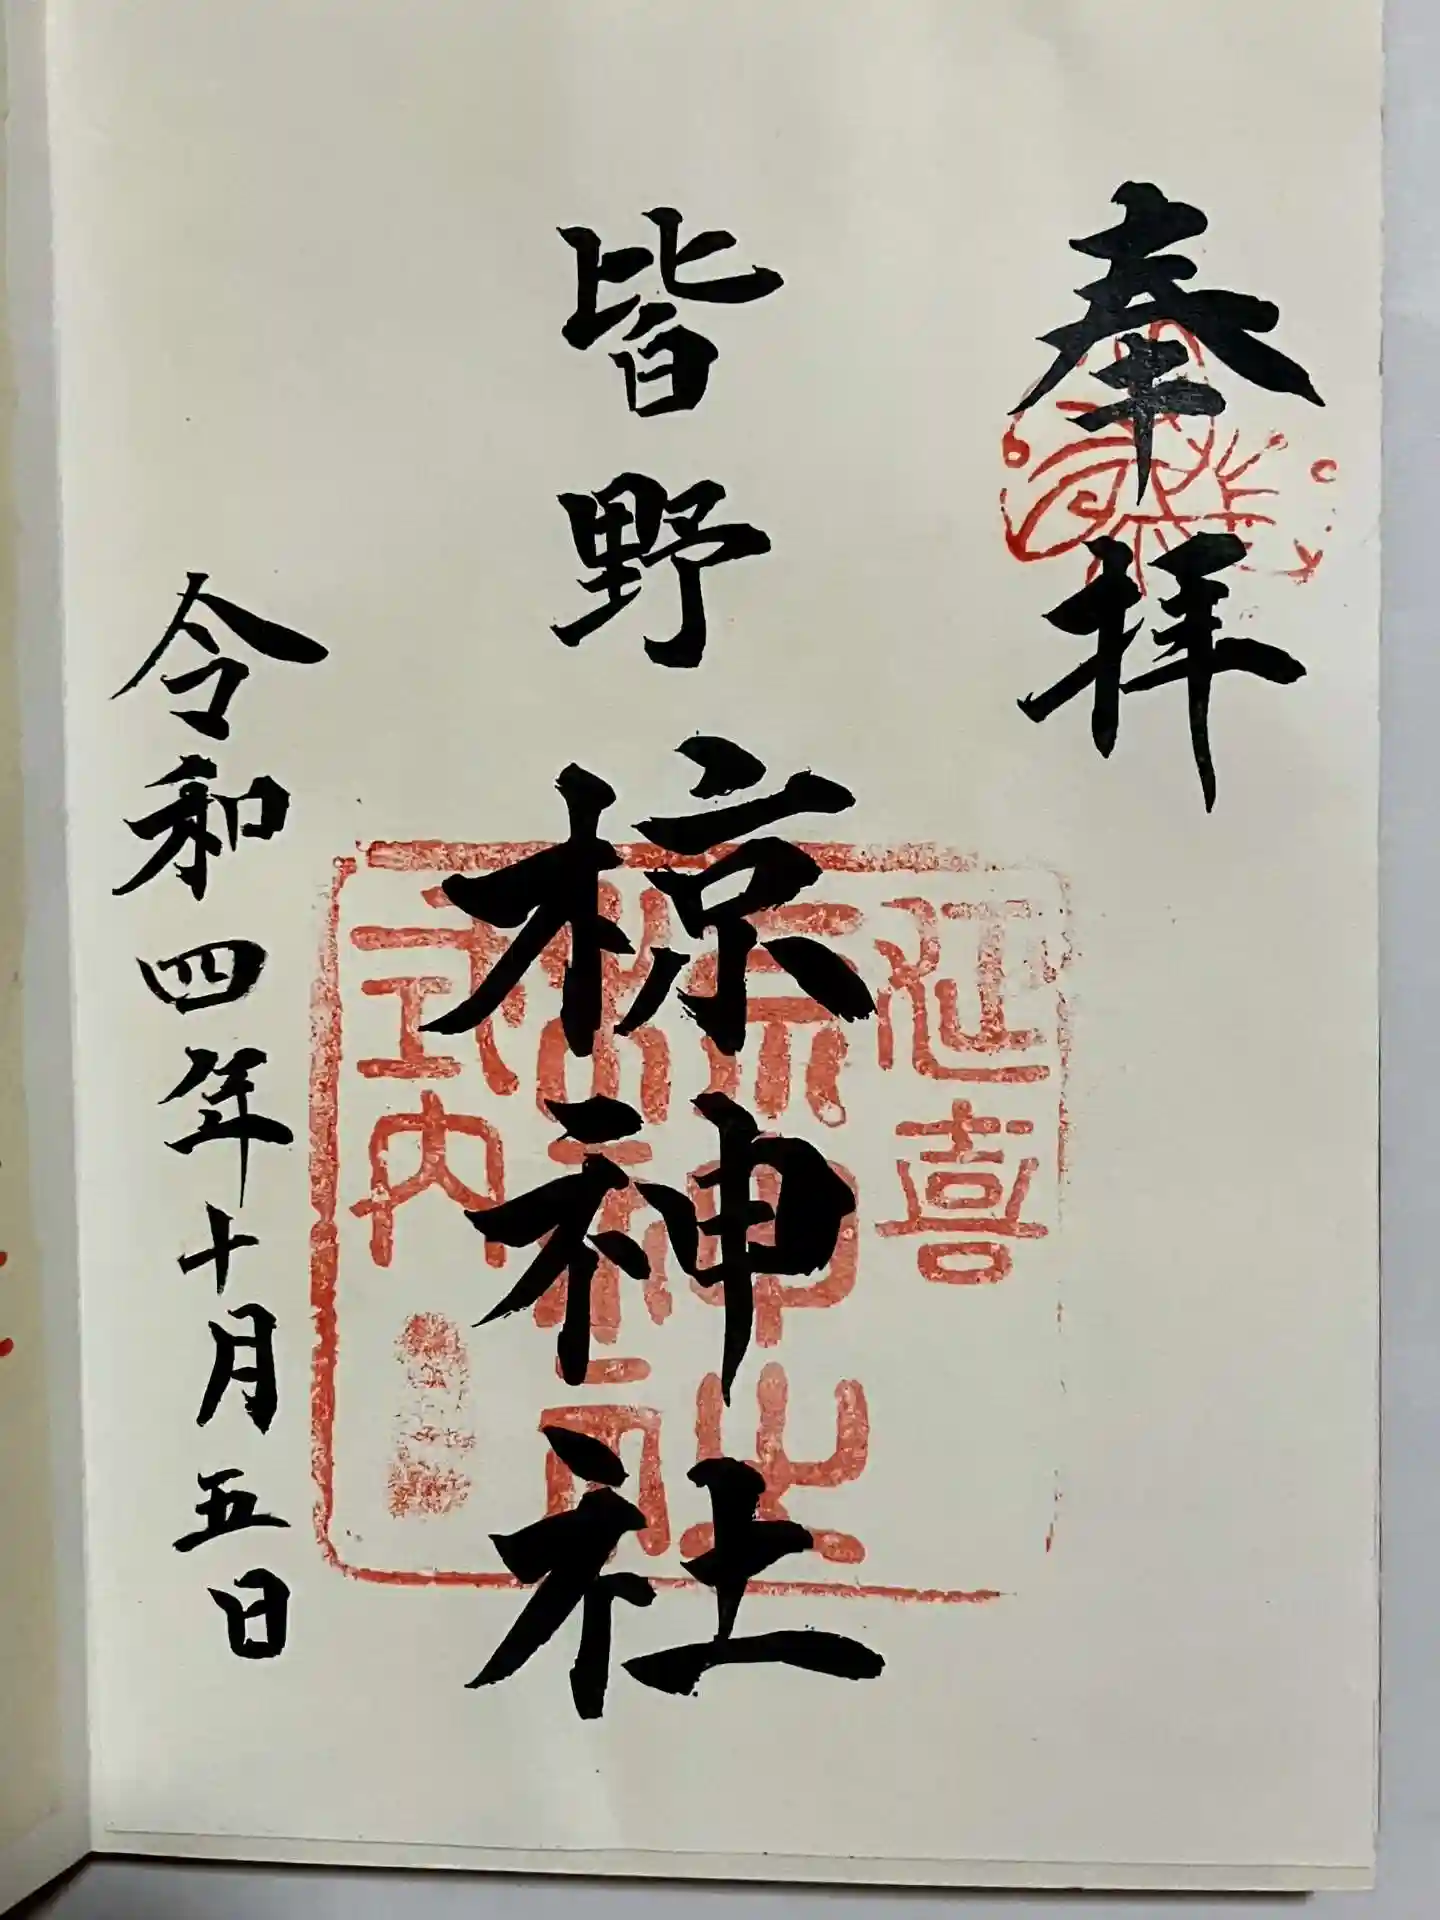 奉拝
延喜
皆野
椋神社
椋神社
式内
令和四年十月五日